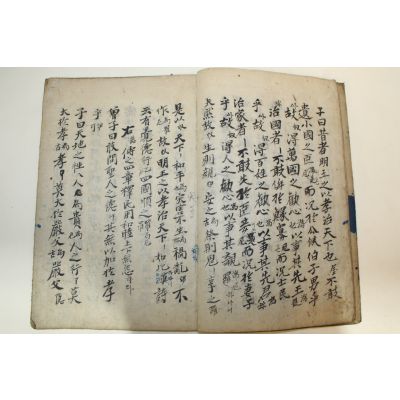 子曰昔者明王之以孝治天下也不敢
遺小國之臣而况於公侯伯子男乎
故得萬國之歡心以事其先王
治國者不敢侮於鰥寡而况士民
乎故得百姓之歡心以事其先君
治家者不敢失於臣妾而况於妻子
乎故得人之歡心以事其親
夫然故生則親安之祭則鬼享之
是以天下和平灾害不生禍亂不
作故明王之以孝治天下如此詩
云有覺德行四國順之
右傳之四章釋民用和睦上下無怨
曾子曰敢問聖人之德其無以加於孝
乎
子曰天地之性人爲貴人之行莫
大於孝孝莫大於嚴父嚴父